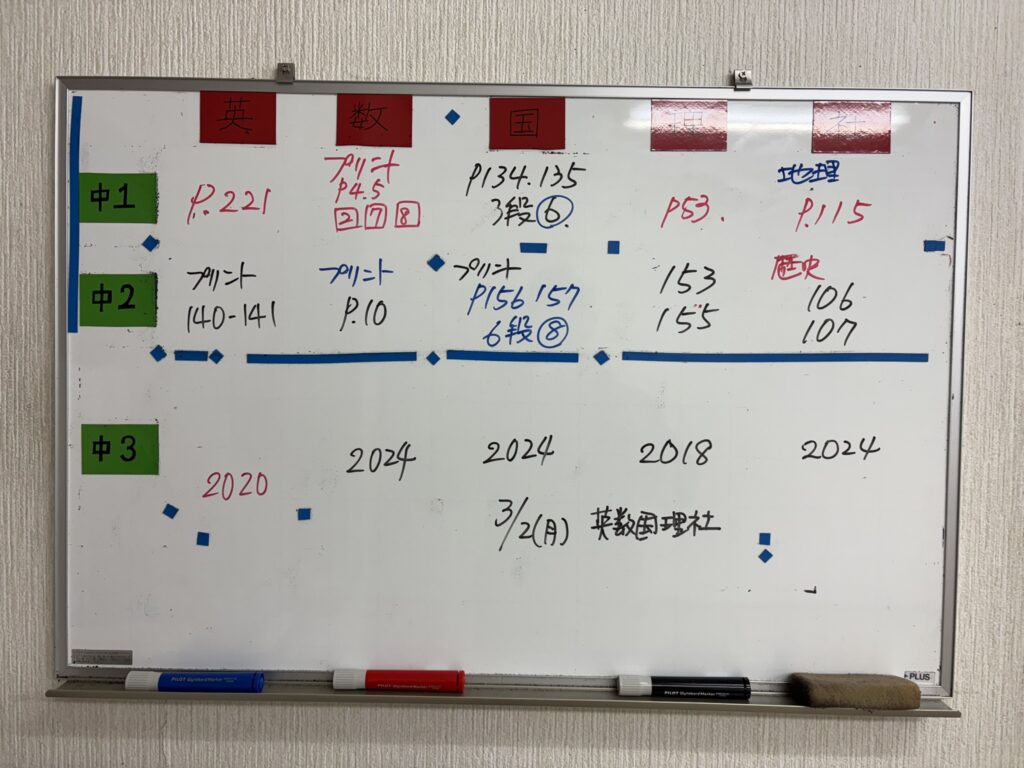 英 数 国 理 社
中1
P.221
プリント
P4.5
2 7 8
P134.135
3段⑥.
P53.
地理
P.115
中2
プリント
140-141
プリント
P.10
プリント
P156 157
6段⑧
153
155
歴史
106
107
中3
2020
2024
2024
2018
2024
3/2(月) 英数国理社
PILOT
PILOT
PILOT
PLUS